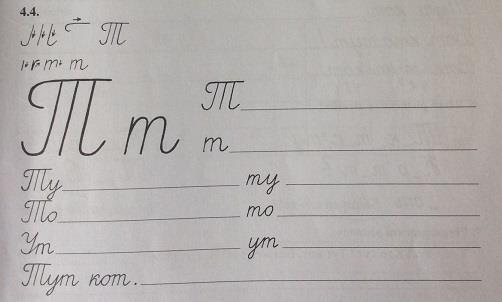 4.4.
Т
т т
Т т
Т
т
Ту ту
То то
Ут ут
Тут кот.